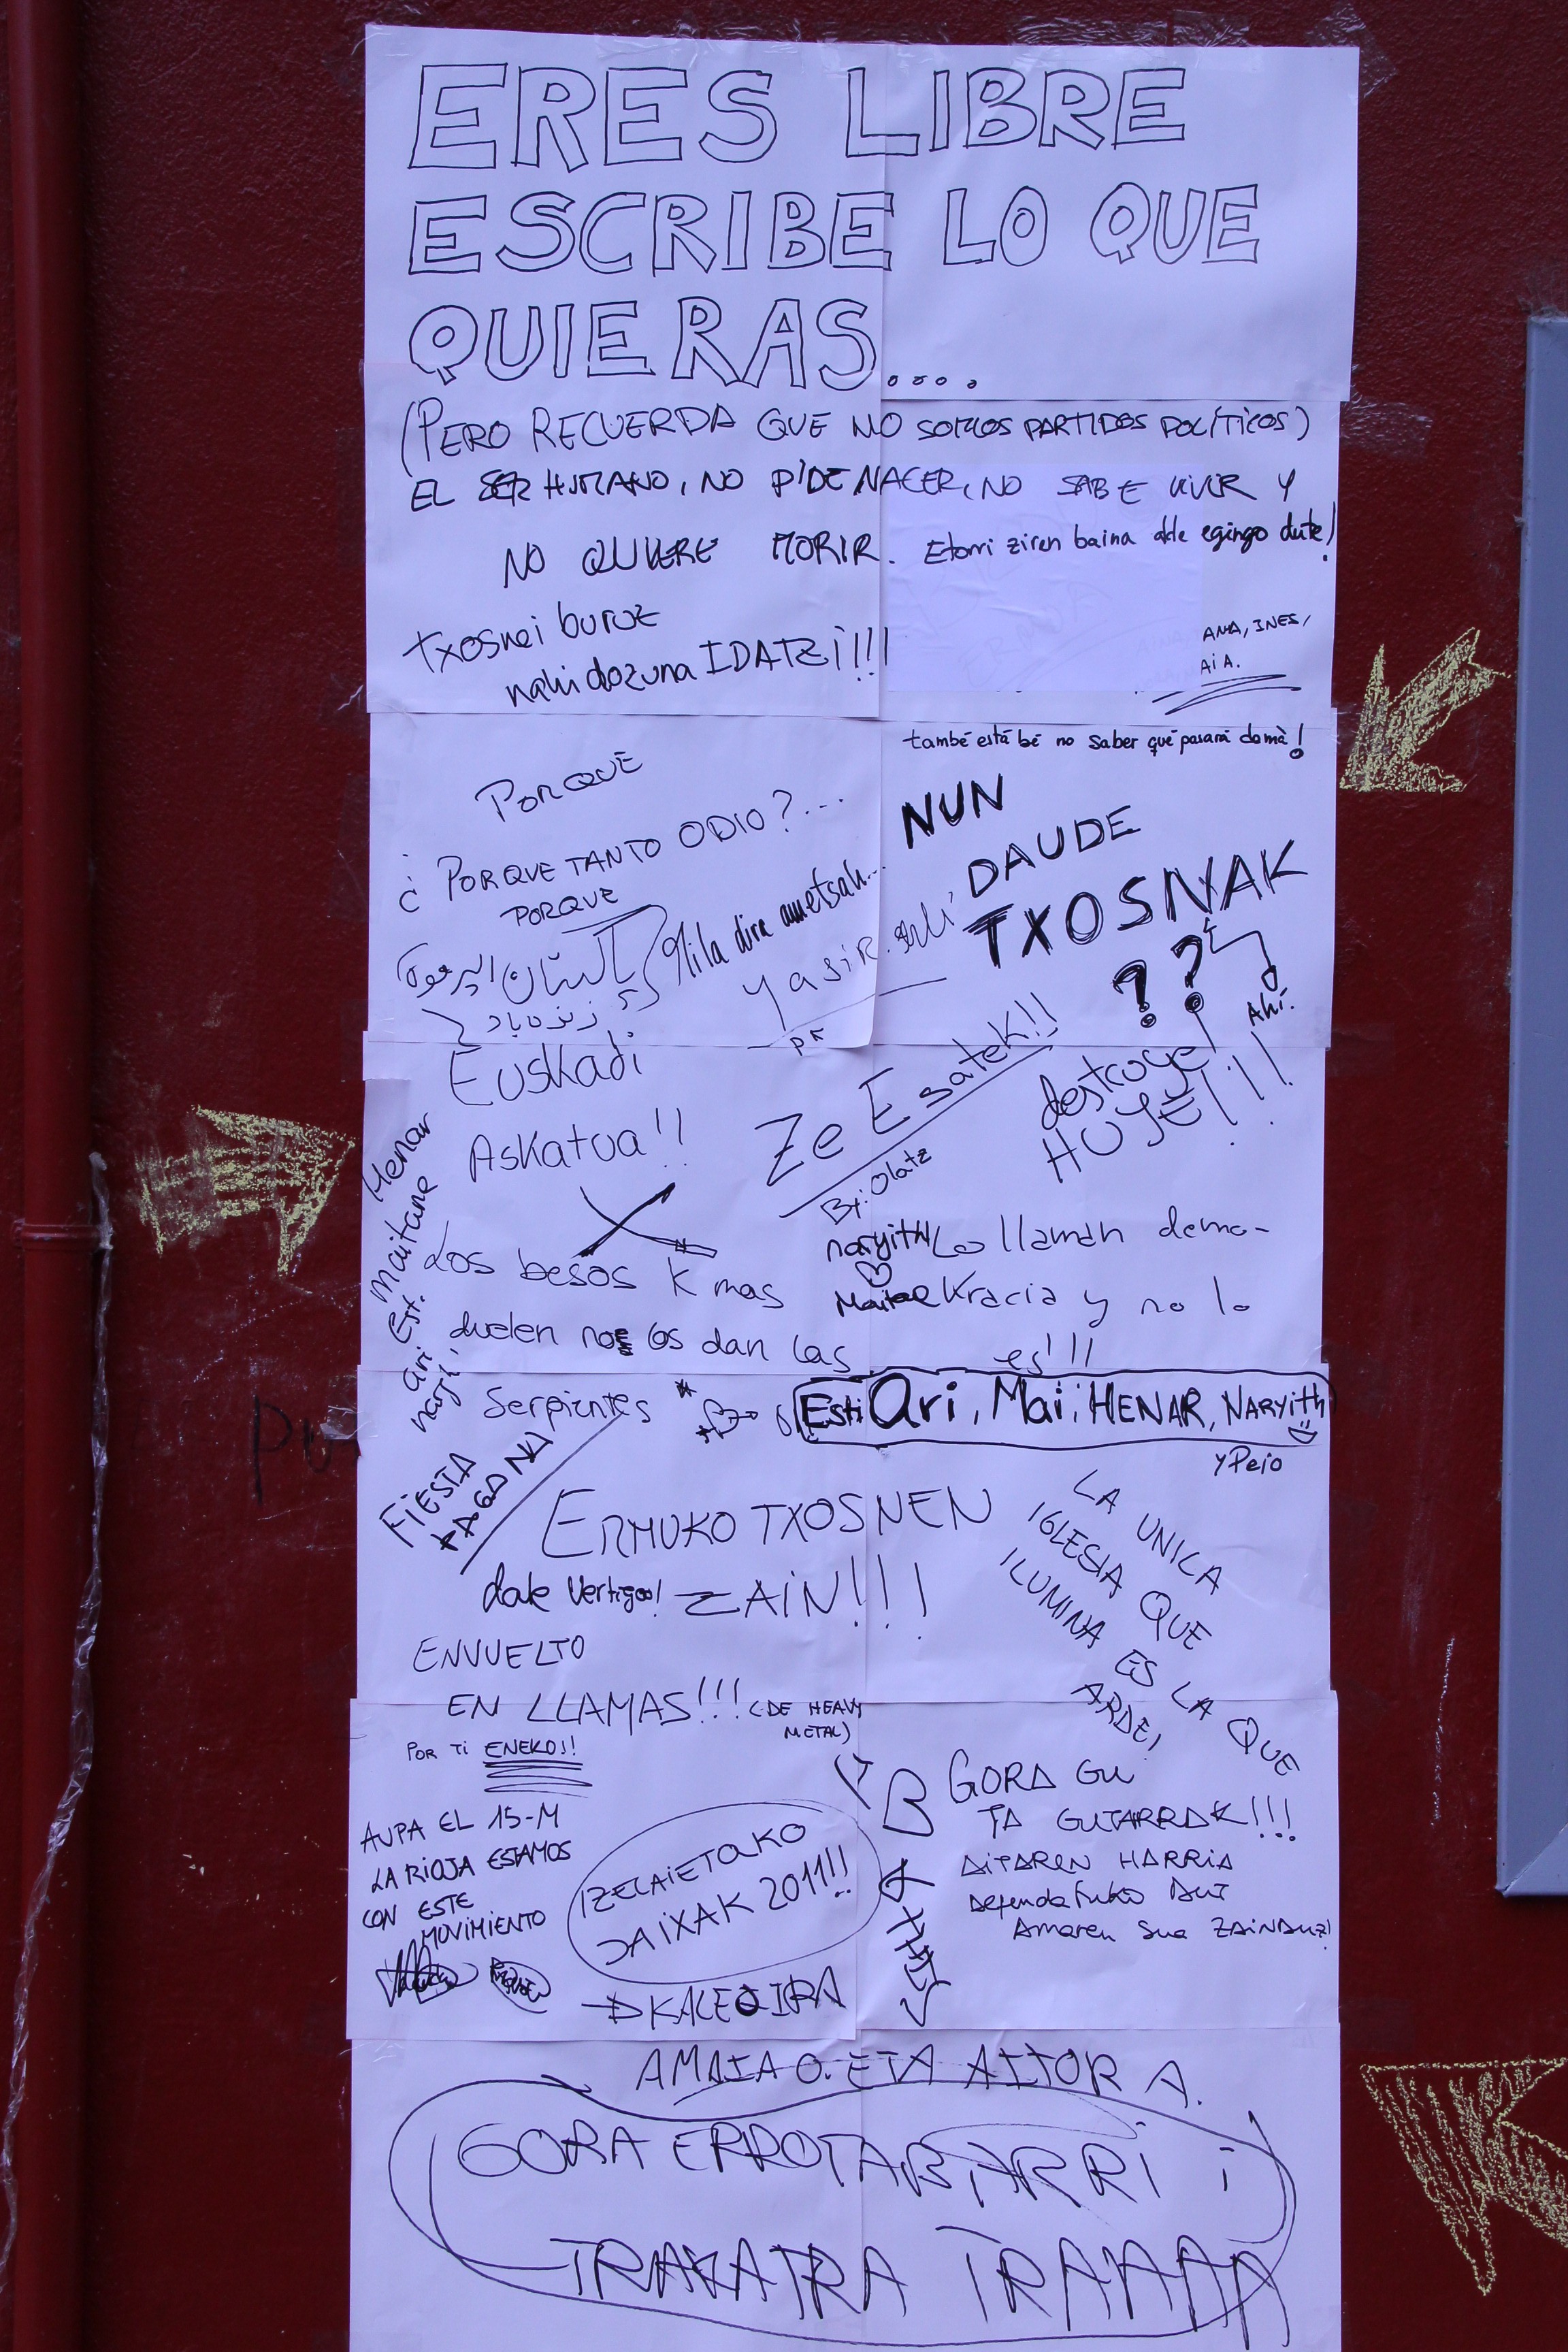 ERES LIBRE
ESCRIBE LO QUE
QUIERAS....
(PERO RECUERDA QUE NO SOMOS PARTIDOS POLÍTICOS)
EL SER HUMANO, NO PIDE NACER, NO SABE VIVIR Y
NO QUIERE MORIR.
Etorri ziren baina alde egingo dute!
txosnei buruz
nahi dozuna IDATZI!!!
ANA, INES,
AIA.
també está bé no saber qué pasará demà!
PORQUE
¿PORQUE TANTO ODIO?...
PORQUE
NUN
DAUDE
TXOSNAK
??
Ahí.
Mila dira ametsak...
yasir.
پاکستان
زندہ باد
PK
Euskadi
Askatua!!
Ze Esatek!!
By: Olatz
naryith
destroye!
HUYE!!!
Henar
Maitane
Est.
Ari
Los besos K mas
duelen no los dan las
serpientes
Lo llaman demo-
kracia y no lo
es!!!
Esti Ari, Mai, HENAR, NARYITH
y Peio
FIESTA
PAGANA
ERMUKO TXOSNEN
ZAIN!!!
dale Vertigoo!
LA UNICA
IGLESIA QUE
ILUMINA ES LA QUE
ARDE!
ENVUELTO
EN LLAMAS!!! (DE HEAVY
METAL)
POR TI ENEKO!!
AUPA EL 15-M
LA RIOJA ESTAMOS
CON ESTE
MOVIMIENTO
IZELAIETAKO
JAIXAK 2011!!
KALEJIRA
GORA GU
TA GUTARRAK!!!
AITAREN HARRIA
Defendatuko Dut
Amaren Sua ZAINDUZ!
AMAIA O. ETA AITOR A.
GORA ERROTABARRI